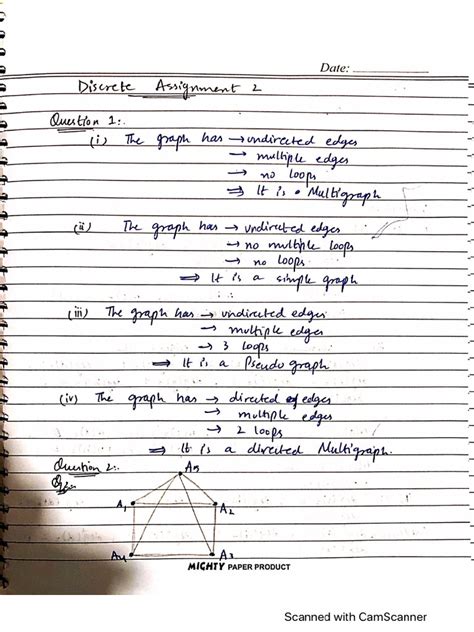 Date:
Discrete Assignment 2
Question 1:.
(i) The graph has → undirected edges
→ multiple edges
→ no loops
⇒ It is • Multigraph
(ii) The graph has → undirected edges
→ no multiple loops
→ no loops
⇒ It is a simple graph
(iii) The graph has → undirected edges
→ multiple edges
→ 3 loops
⇒ It is a Pseudo graph
(iv) The graph has → directed edges
→ multiple edges
→ 2 loops
⇒ It is a directed Multigraph.
Question 2:.
A5
A1 A2
A4 A3
MIGHTY PAPER PRODUCT
Scanned with CamScanner